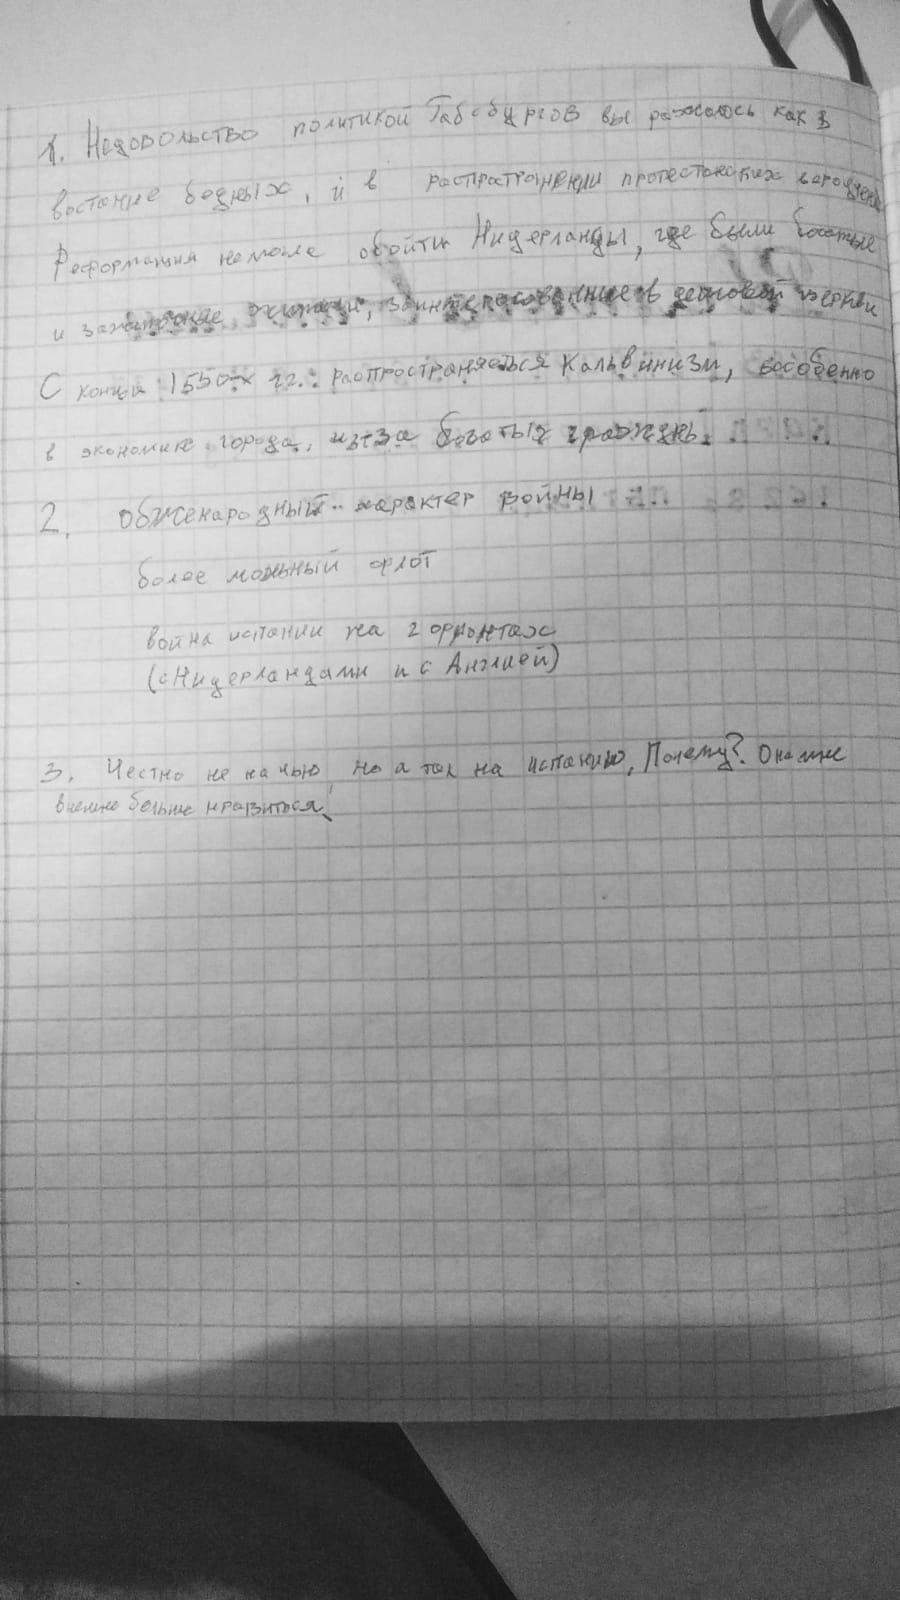 1. Недовольство политикой Габсбургов выражалось как в
востание бедных, и в распространении протестанских вероучений
Реформация немогла обойти Нидерланды, где были богатые
и зажиточные жители, заинтересованные в дешовой церкви
С конца 1550-х гг. распространяеться Кальвинизм, особенно
в экономике города, из-за богатых граждан.
2. Обженародный характер войны
более мощьный флот
война испании на 2 фронтах
(с Нидерландами и с Англией)
3. Честно не на чью, но а так на испанию, Почему? Она мне
внешне больше нравиться